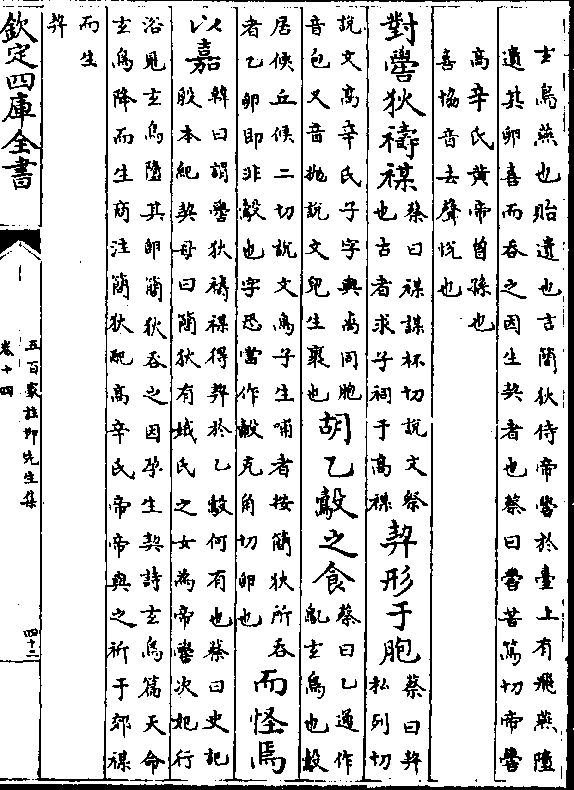 玄鳥燕也貽遺也言簡狄侍帝嚳於臺上有飛燕墮
遺其卵喜而吞之因生契者也蔡曰嚳苦篤切帝嚳
高辛氏黄帝曾孫也
喜協音去聲悅也
對嚳狄禱禖蔡曰禖謀杯切說文祭也古者求子祠于高禖契形于胞蔡曰契私列切
說文高辛氏子字與卨同胞音包又音抛說文兒生裹也胡乙鷇之食蔡曰乙通作鳦玄鳥也鷇
居候丘候二切說文鳥子生哺者按簡狄所吞者乙卵即非鷇也字恐當作㱿克角切卵也而怪焉
以嘉韓曰謂嚳狄禱禖得契於乙鷇何有也蔡曰史記殷本紀契母曰簡狄有娀氏之女為帝嚳次妃行
浴見玄鳥墮其卵簡狄吞之因孕生契詩玄鳥篇天命玄鳥降而生商注簡狄配高辛氏帝帝與之祈于郊禖
而生契
欽定四庫全書
五百家註柳先生集
卷十四
四十二